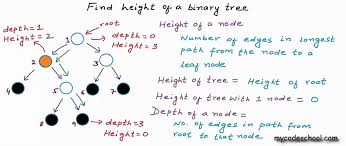 Find height of a binary tree
depth=1
Height=2
root
depth=0
Height=3
1
2
3
4
5
6
7
8
9
depth=3
Height=0
Height of a node
= Number of edges in longest
path from the node to a
leaf node
Height of tree = Height of root
Height of tree with 1 node = 0
Depth of a node =
No. of edges in path from
root to that node
mycodeschool.com